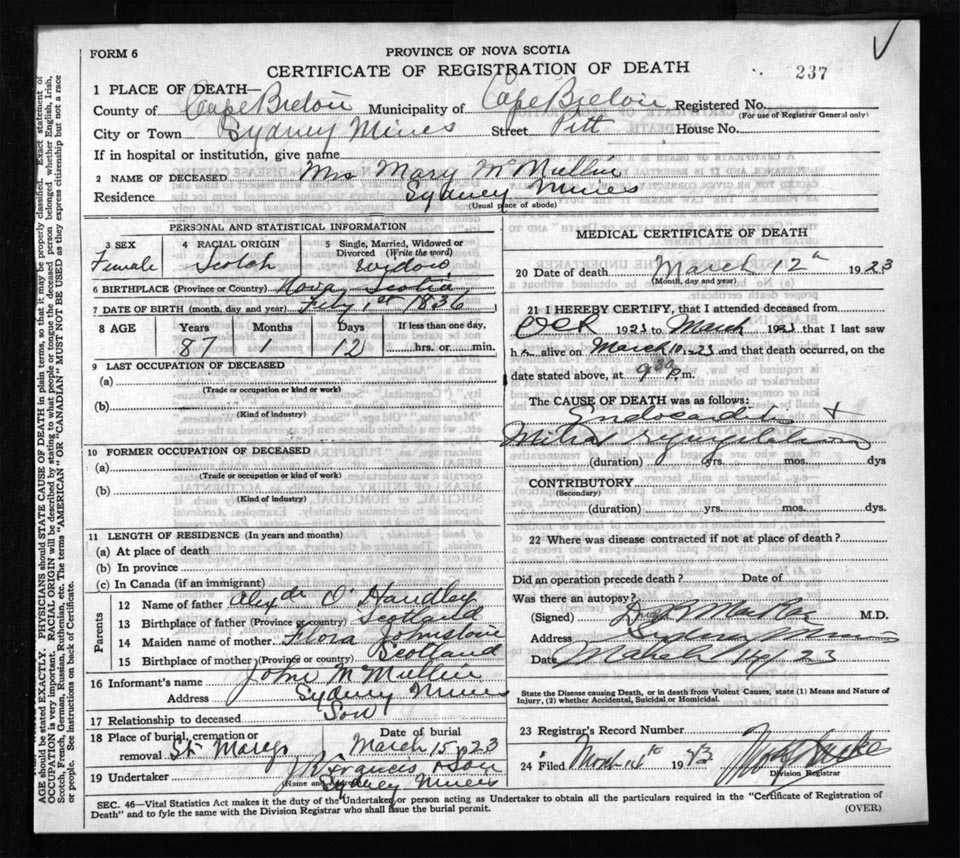 FORM 6
PROVINCE OF NOVA SCOTIA
CERTIFICATE OF REGISTRATION OF DEATH
237
1 PLACE OF DEATH—
County of Cape Breton Municipality of Cape Breton Registered No.
(For use of Registrar General only)
City or Town Sydney Mines Street Pitt House No.
If in hospital or institution, give name
2 NAME OF DECEASED Mrs Mary McMullin
Residence Sydney Mines
(Usual place of abode)
PERSONAL AND STATISTICAL INFORMATION
3 SEX Female
4 RACIAL ORIGIN Scotch
5 Single, Married, Widowed or Divorced (Write the word) Widow
6 BIRTHPLACE (Province or Country) Nova Scotia
7 DATE OF BIRTH (month, day and year) 1st 1836
8 AGE Years Months Days If less than one day,
87 1 12 hrs. or min.
9 LAST OCCUPATION OF DECEASED
(a)
(Trade or occupation or kind of work)
(b)
(Kind of industry)
10 FORMER OCCUPATION OF DECEASED
(a)
(Trade or occupation or kind of work)
(b)
(Kind of industry)
11 LENGTH OF RESIDENCE (In years and months)
(a) At place of death
(b) In province
(c) In Canada (if an immigrant)
Parents
12 Name of father Alexdr O'Handley
13 Birthplace of father (Province or country) Scotland
14 Maiden name of mother Flora Johnstone
15 Birthplace of mother (Province or country) Scotland
16 Informant's name John McMullin
Address Sydney Mines
17 Relationship to deceased Son
18 Place of burial, cremation or removal St Marys
Date of burial March 15 1923
19 Undertaker J Francis & Son
Sydney Mines
MEDICAL CERTIFICATE OF DEATH
20 Date of death March 12th 1923
(Month, day and year)
21 I HEREBY CERTIFY, that I attended deceased from
1923 to March 1923 that I last saw
h alive on March 10.23 and that death occurred, on the
date stated above, at 9 30 P.m.
The CAUSE OF DEATH was as follows:
Endocarditis +
Mitral
(duration) yrs. mos. dys
CONTRIBUTORY
(Secondary)
(duration) yrs. mos. dys.
22 Where was disease contracted if not at place of death?
Did an operation precede death? Date of
Was there an autopsy?
(Signed) M.D.
Address Sydney Mines
Date 23
State the Disease causing Death, or in death from Violent Causes, state (1) Means and Nature of
Injury, (2) whether Accidental, Suicidal or Homicidal.
23 Registrar's Record Number
24 Filed March 1923
Division Registrar
SEC. 46—Vital Statistics Act makes it the duty of the Undertaker or person acting as Undertaker to obtain all the particulars required in the "Certificate of Registration of
Death" and to fyle the same with the Division Registrar who shall issue the burial permit.
(OVER)
AGE should be stated EXACTLY. PHYSICIANS should STATE CAUSE OF DEATH in plain terms, so that it may be properly classified. Exact statement of
OCCUPATION is very important. RACIAL ORIGIN will be described by stating to what people or tongue the deceased person belonged whether English, Irish,
Scotch, French, German, Russian, Ruthenian, etc. The terms "AMERICAN" OR "CANADIAN" MUST NOT BE USED as they express citizenship but not a race
or people. See instructions on back of Certificate.